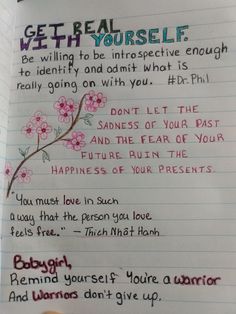 GET REAL
WITH YOURSELF.
Be willing to be introspective enough
to identify and admit what is
really going on with you. #Dr.Phil
DON'T LET THE
SADNESS OF YOUR PAST
AND THE FEAR OF YOUR
FUTURE RUIN THE
HAPPINESS OF YOUR PRESENTS.
"You must love in such
a way that the person you love
feels free." – Thich Nhât Hanh
Babygirl,
Remind yourself You're a warrior
And Warriors don't give up.